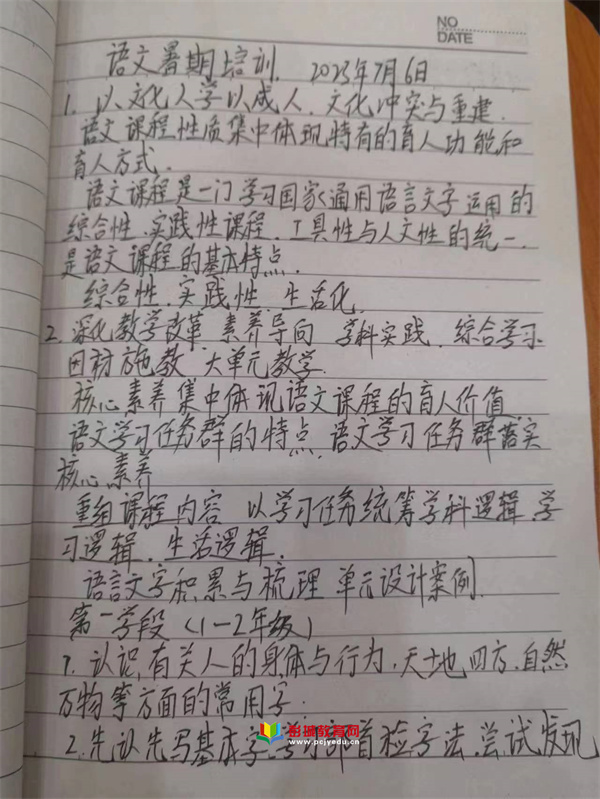 NO
DATE
语文暑期培训. 2023年7月6日
1. 以文化人学以成人. 文化冲突与重建.
语文课程性质集中体现特有的育人功能和
育人方式.
语文课程是一门学习国家通用语言文字运用的
综合性.实践性课程. 工具性与人文性的统一.
是语文课程的基本特点.
综合性.实践性.生活化.
2.深化教学改革 素养导向 学科实践. 综合学习
因材施教 大单元教学.
核心素养集中体现语文课程的育人价值
语文学习任务群的特点.语文学习任务群落实
核心素养
重组课程内容 以学习任务统筹学科逻辑.学
习逻辑.生活逻辑.
语言文字积累与梳理 单元设计案例.
第一学段(1-2年级)
1.认识有关人的身体与行为.天地四方.自然
万物等方面的常用字.
2.先认先写基本字.学习部首检字法.尝试发现
彤博教育网
www.pcjyedu.cn